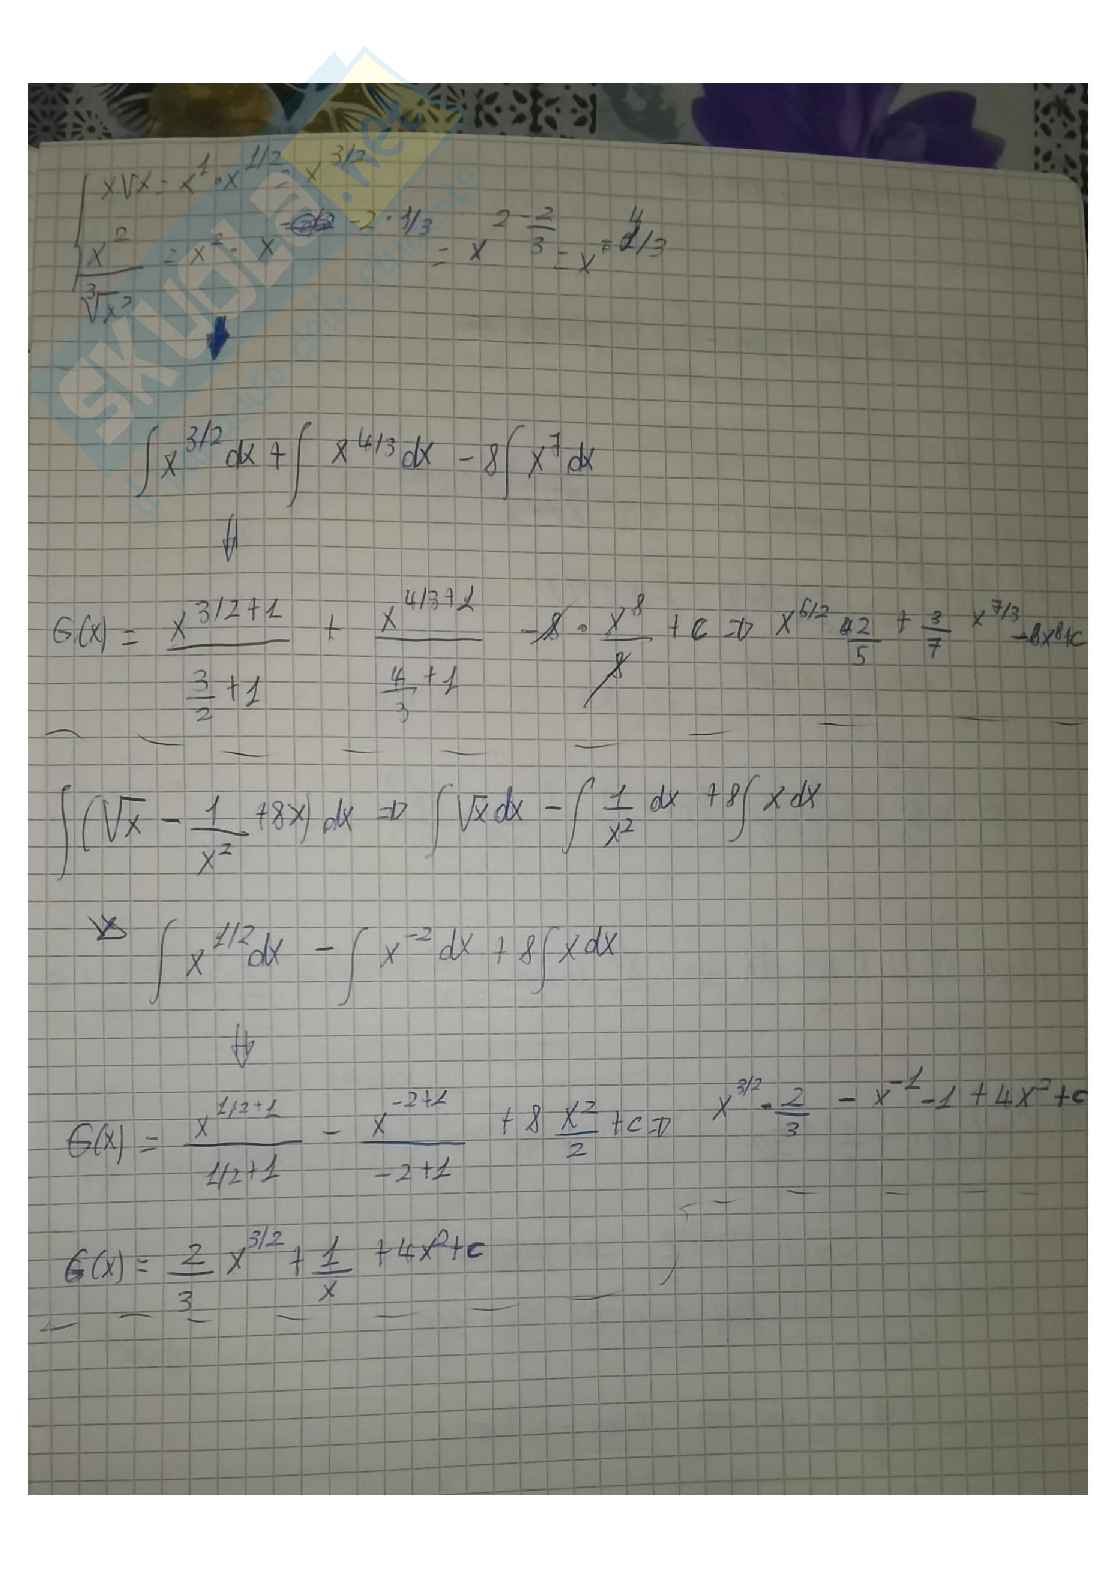 x√x = x^1 · x^{1/2} = x^{3/2}
x^2 / ∛x^2 = x^2 · x^{-2·1/3} = x^{2-2/3} = x^{4/3}
SKUOLA.net
∫ x^{3/2} dx + ∫ x^{4/3} dx - 8∫ x^7 dx
⇓
G(x) = x^{3/2+1} / (3/2 + 1) + x^{4/3+1} / (4/3 + 1) - 8 · x^8/8 + c ⇒ x^{5/2} 2/5 + 3/7 x^{7/3} - 8x^8 + c
∫ (√x - 1/x^2 + 8x) dx ⇒ ∫ √x dx - ∫ 1/x^2 dx + 8∫ x dx
∫ x^{1/2} dx - ∫ x^{-2} dx + 8∫ x dx
⇓
G(x) = x^{1/2+1} / (1/2+1) - x^{-2+1} / (-2+1) + 8 x^2/2 + c ⇒ x^{3/2} · 2/3 - x^{-1} - 1 + 4x^2 + c
G(x) = 2/3 x^{3/2} + 1/x + 4x^2 + c